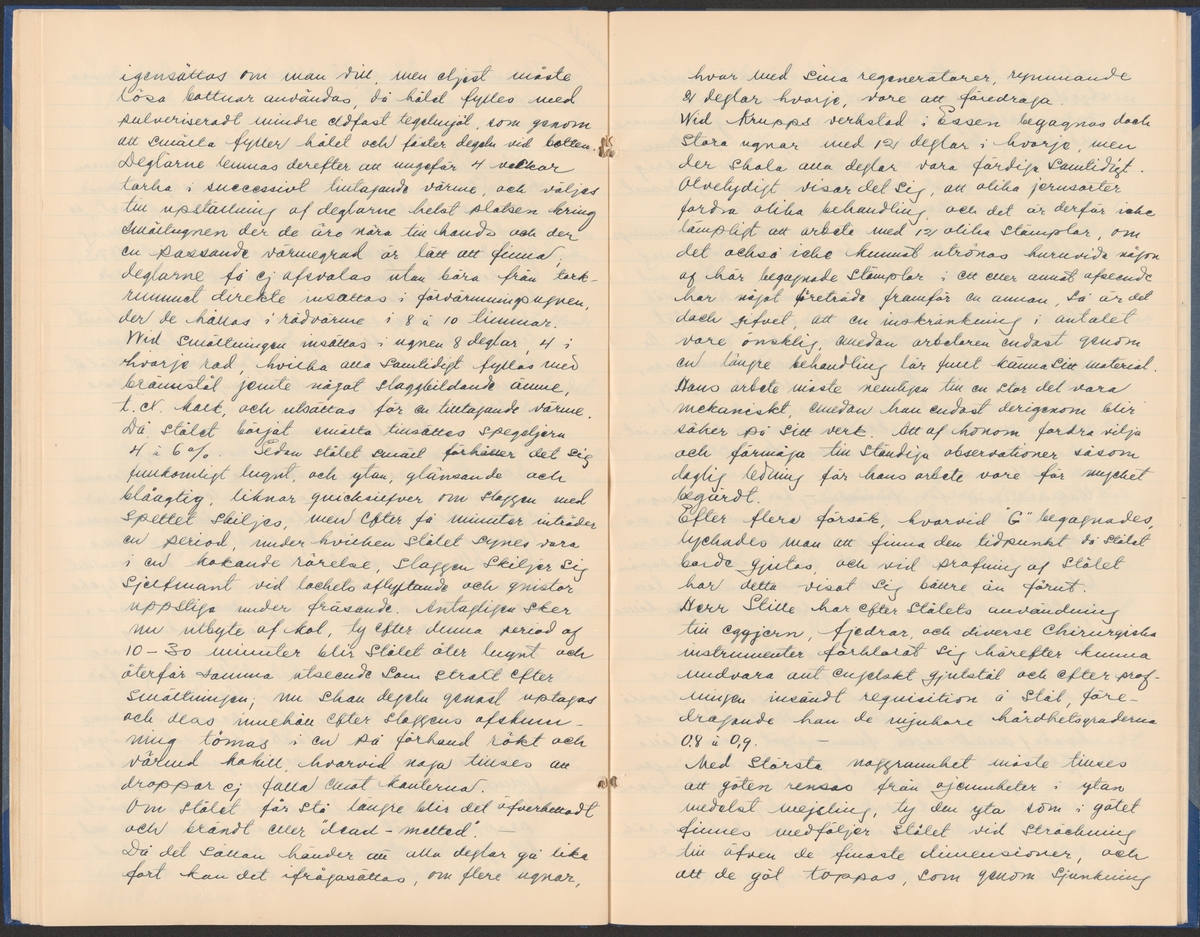 igensättas om man vill, men eljest måste
lösa bottnar användas, då hålet fylles med
pulveriseradt mindre eldfast tegelmjöl, som genom
att smälta fyller hålet och fäster degeln vid botten.
Deglarne lemnas derefter att ungefär 4 veckor
torka i successivt tilltagande värme, och väljes
till uppställning af deglarne helst platsen kring
smältugnen der de äro nära till hands och der
en passande värmegrad är lätt att finna;
deglarne få ej afvalas utan böra från tork-
rummet direkte insättas i förvärmningsugnen,
der de hållas i rödvärme i 8 à 10 timmar.
Wid smältningen insättas i ugnen 8 deglar, 4 i
hvarje rad, hvilka alla samtidigt fyllas med
brännstål jemte något slaggbildande ämne,
t. ex. kalk, och utsättas för en tilltagande värme.
Då stålet börjat smälta tillsättes spegeljern
4 à 6%. Sedan stålet smält förhåller det sig
fullkomligt lugnt, och ytan, glänsande och
blåagtig, liknar quicksilfver om slaggen med
spettet skiljes, men efter få minuter inträder
en period, under hvilken stålet synes vara
i en kokande rörelse, slaggen skiljer sig
sjelfmant vid lockets aflyftande och gnistor
uppstiga under fräsande. Antagligen sker
nu utbyte af kol, ty efter denna period af
10-30 minuter blir stålet åter lugnt och
återfår samma utseende som strax efter
smältningen; nu skall degeln genast uptagas
och dess innehåll efter slaggens afskum-
ning tömas i en på förhand rökt och
värmd kokill, hvarvid noga tillses att
droppar ej falla emot kanterna.
Om stålet får stå längre blir det öfverhettadt
och brändt eller "dead-melted". -
Då det sällan händer att alla deglar gå lika
fort kan det ifrågasättas, om flere ugnar,
hvar med sina regeneratorer, rymmande
deglar hvarje, vore att föredraga.
Wid Krupps verkstad i Essen begagnas dock
stora ugnar med 12 deglar i hvarje, men
der skola alla deglar vara färdiga samtidigt.
Otvetydigt visar det sig, att olika jernsorter
fordra olika behandling, och det är derför icke
lämpligt att arbeta med 12 olika stämplar, om
det också icke kunnat utrönas huruvida någon
af här begagnade stämplar i ett eller annat afseende
har något företräde framför en annan, så är det
dock gifvet, att en inskränkning i antalet
vore önsklig, emedan arbetaren endast genom
en längre behandling lär fullt känna sitt material.
Hans arbete måste nemligen till en stor del vara
mekaniskt, emedan han endast derigenom blir
säker på sitt verk. Att af honom fordra vilja
och förmåga till ständiga observationer såsom
daglig ledning för hans arbete vore för mycket
begärdt. -
Efter flera försök, hvarvid "G" begagnades,
lyckades man att finna den tidpunkt då stålet
borde gjutas, och vid profning af stålet
har detta visat sig bättre än förut.
Herr Stille har efter stålets användning
till eggjern, fjedrar, och diverse Chirurgiska
instrumenter förklarat sig härefter kunna
undvara allt engelskt gjutstål och efter prof-
ningen insändt requisition å stål, före-
dragande han de mjukare hårdhetsgraderna
0,8 à 0,9. -
Med största noggrannhet måste tillses
att göten rensas från ojemnheter i ytan
medelst mejsling, ty den yta som i götet
finnes medföljer stålet vid sträckning
till äfven de finaste dimensioner, och
att de göt toppas, som genom sjunkning